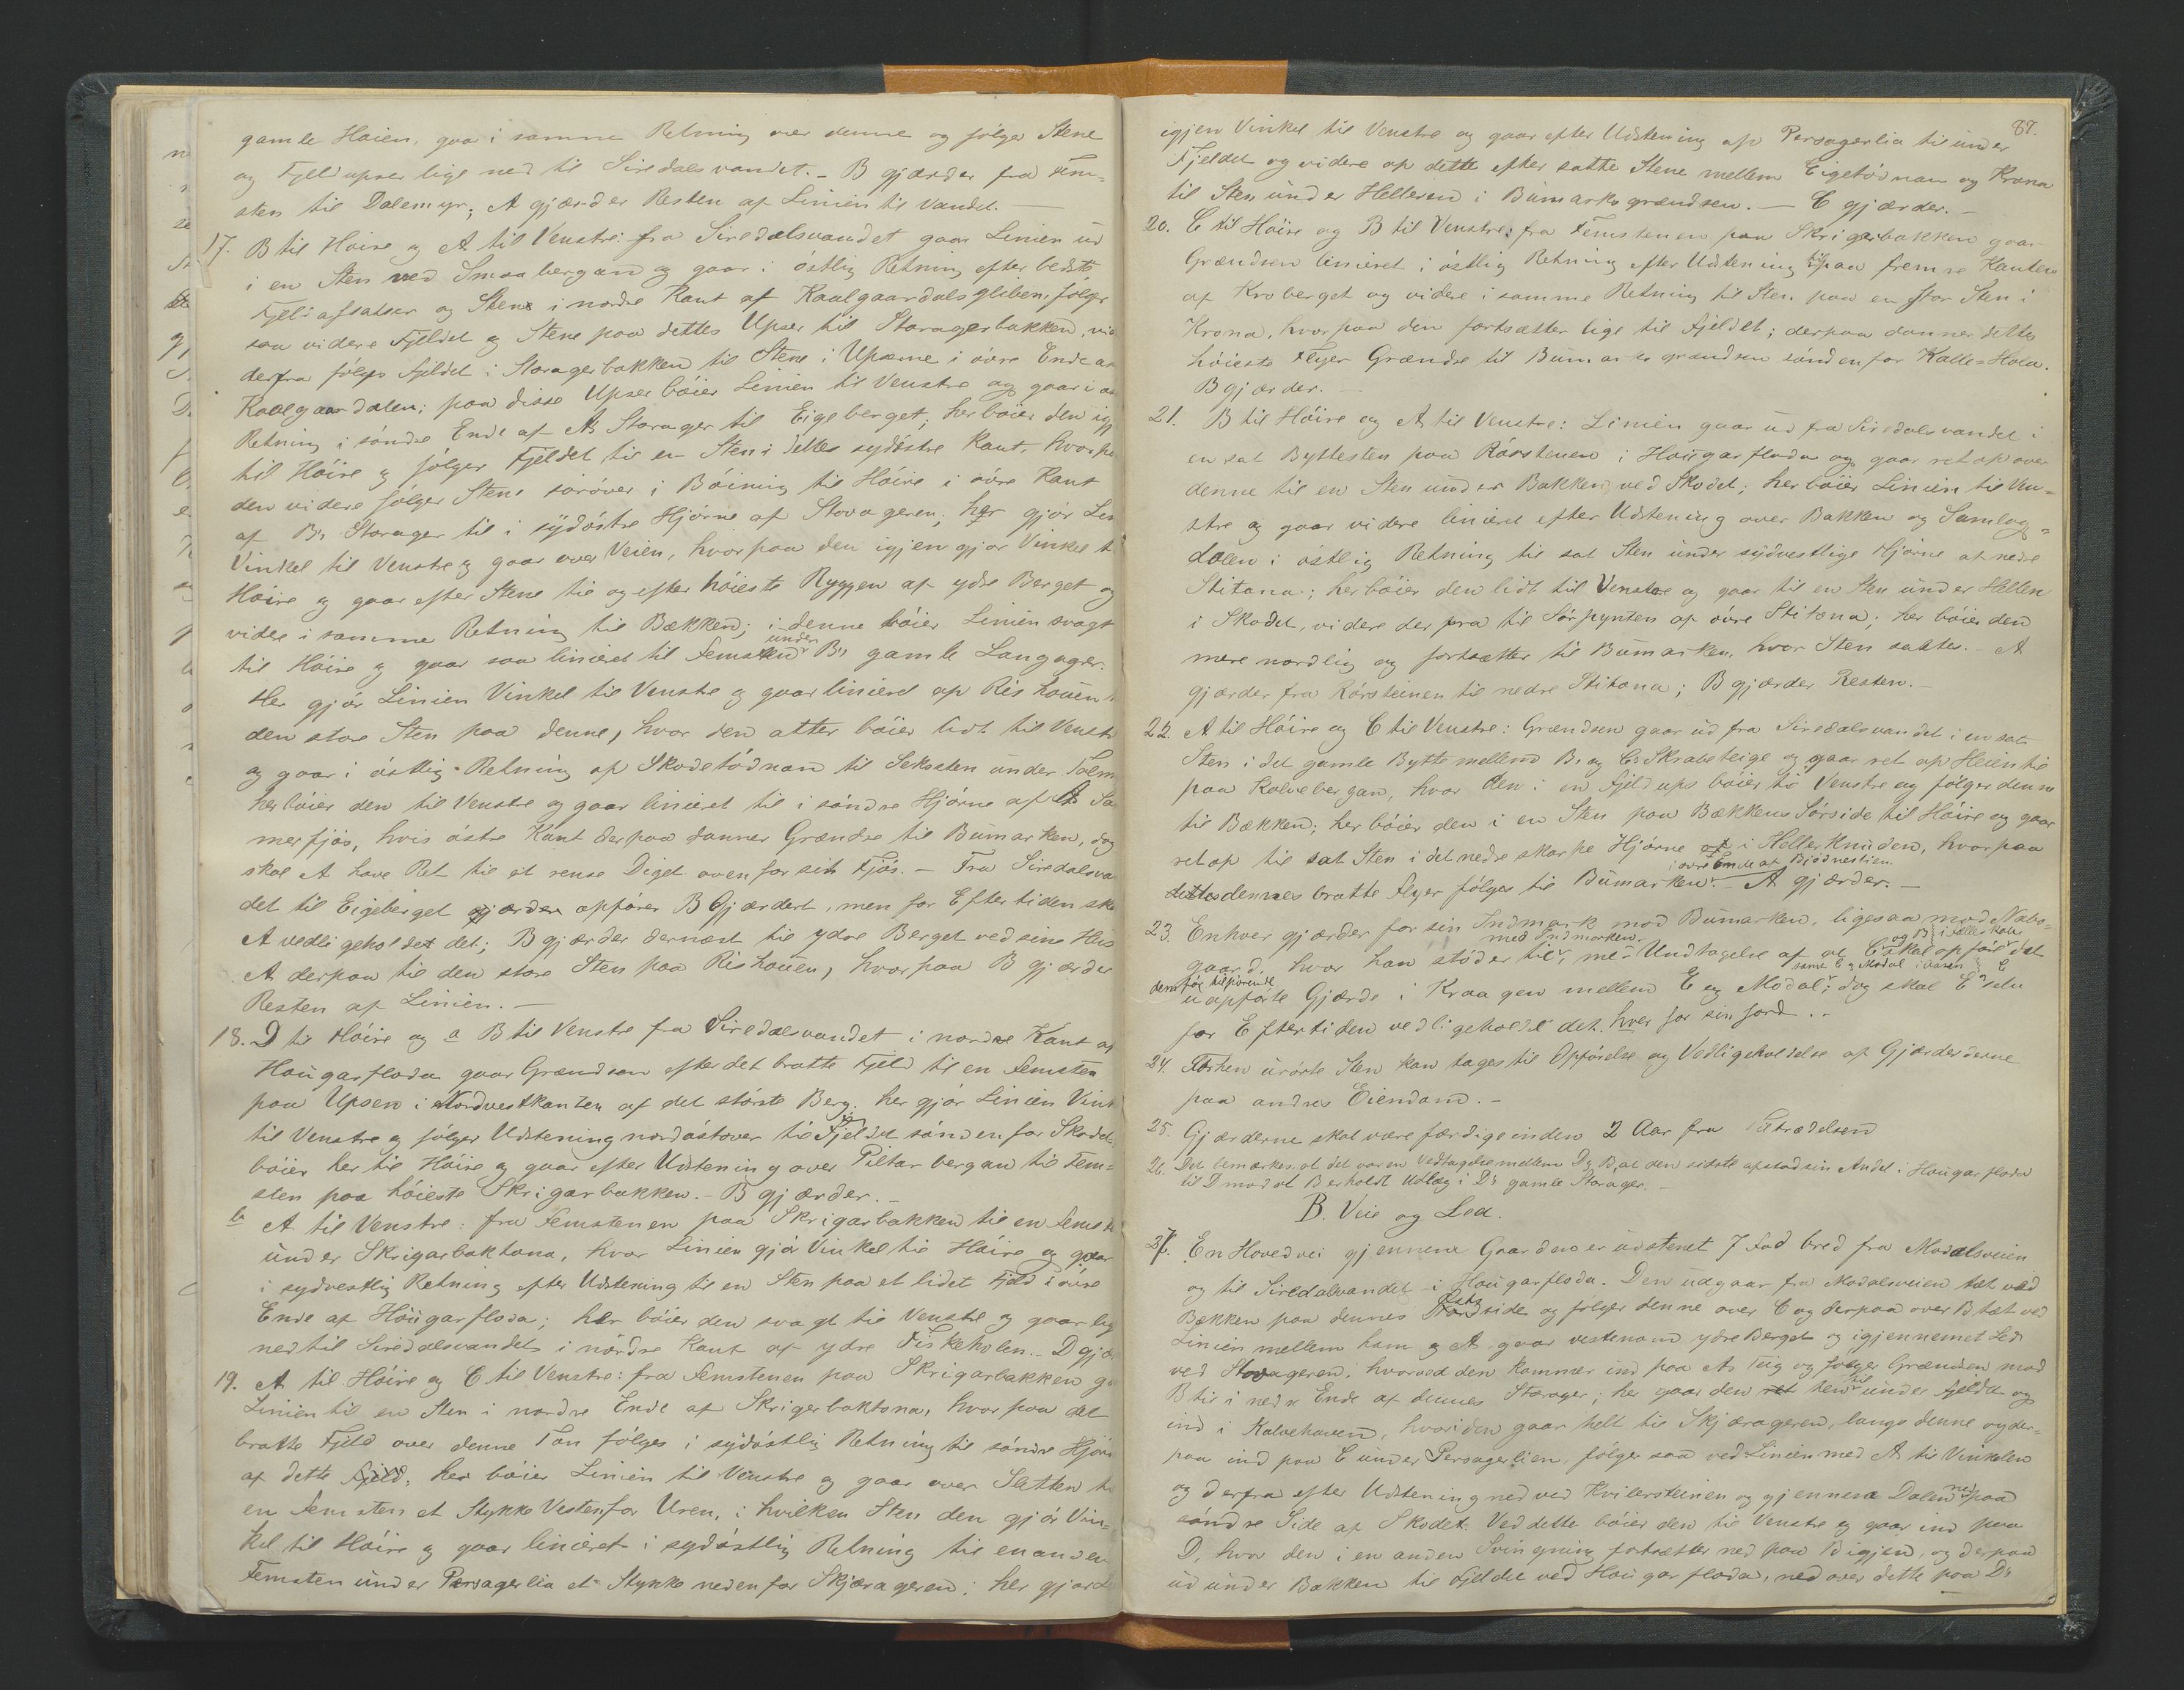 gamle Haien, gaa i samme Retning over denne og følger Stene
og Fjeldupser lige ned til Siredalsvandet. - B gjærder fra Fem-
sten til Dalemyr; A gjærder Resten af Linien til Vandet. —
17. B til Høire og A til Venstre: fra Siredalsvandet gaar Linien ud
i en Sten ved Smaabergan og gaar i østlig Retning efter bedste
Fjeldafsatser og Stene i nordre Kant af Kaalgaardalsgluben, følger
saa videre Fjeldet og Stene paa dettes Upser til Storagerbakken,
derfra følges Fjeldet i Storagerbakken til Stene i Upserne i øvre Ende af
Kaalgaardalen; paa disse Upser bøier Linien til Venstre og gaar i
Retning i søndre Ende af A's Storager til Eigeberget; her bøier den
til Høire og følger Fjeldet til en Sten i dettes sydøstre Kant, hvorpaa
den videre følger Stene sørover i Bøining til Høire i øvre Kant
af B's Storager til i sydøstre Hjørne af Stovageren; her gjør
Vinkel til Venstre og gaar over Veien, hvorpaa den igjen gjør Vinkel
Høire og gaar efter Stene til og efter høieste Ryggen af ydre Berget og
videre i samme Retning til Bækken; i denne bøier Linien svagt
til Høire og gaar saa linieret til Femsten under B's gamle Langager.
Her gjør Linien Vinkel til Venstre og gaar linieret op Rishouen
den store Sten paa denne, hvor den atter bøier lidt til Venstre
og gaar i østlig Retning op Skodetødnan til Seksten under
her bøier den til Venstre og gaar linieret til i søndre Hjørne af A's
merfjøs, hvis østre Kant derpaa danner Grændse til Bumarken, dog
skal A have Ret til at rense Diget ovenfor sit Fjøs. - Fra Siredalsva
det til Eigeberget opfører B Gjærdert, men for Eftertiden
A vedligeholdet det; B gjærder dernæst til ydre Berget ved sine
A derpaa til den store Sten paa Rishouen, hvorpaa B gjærder
Resten af Linien. -
18. D til Høire og a B til Venstre fra Siredalsvandet i nordre Kant af
Hougarfloda gaar Grændsen efter det bratte Fjeld til en Femsten
paa Upsen i Nordvestkanten af det største Berg; her gjør Linien
til Venstre og følger Udstening nordøstover til Fjeldet søndenfor
bøier her til Høire og gaar efter Udstening over Piltarbergan til Fem-
sten paa høieste Skrigarbakken. - B gjærder. -
b A til Venstre: fra Femstenen paa Skrigarbakken til en
under Skrigarbaktona, hvor Linien gjør Vinkel til Høire og gaar
i sydvestlig Retning efter Udstening til en Sten paa et lidet Fjeld i øvre
Ende af Hougarfloda; her bøier den svagt til Venstre og gaar
ned til Siredalsvandet i nordre Kant af ydre Fiskeholen. - D
19. A til Høire og C til Venstre: fra Femstenen paa Skrigarbakken
Linien til en Sten i nordre Ende af Skrigerbaktona, hvorpaa det
bratte Fjeld over denne Ton følges i sydøstlig Retning til søndre
af dette Fjeld; her bøier Linien til Venstre og gaar over Sletten
en Femsten et Stykke Vestenfor Uren, i hvilken Sten den gjør Vin-
kel til Høire og gaar linieret i sydøstlig Retning til en anden
Femsten under Persagerlia et Stykke nedenfor Skjærageren; her
87.
igjen Vinkel til Venstre og gaar efter Udstening op Persagerlia til under
Fjeldet og videre op dette efter satte Stene mellem Eigetødnan og Krona
til Sten under Helleren i Bumarksgrændsen. — C gjærder. -
20. C til Høire og B til Venstre: fra Femstenen paa Skrigerbakken gaar
Grændsen linieret i østlig Retning efter Udstening til paa fremre Kanten
af Kroberget og videre i samme Retning til Sten paa en stor Sten i
Krona, hvorpaa den fortsætter lige til Fjeldet; derpaa danner dettes
høieste Flyer Grændse til Bumarksgrændsen søndenfor Kalle-Hola.
B gjærder. -
21. B til Høire og A til Venstre: Linien gaar ud fra Siredalsvandet i
en sat Byttesten paa Rørstenen i Hougarfloda og gaar ret op over
denne til en Sten under Bakken ved Skodet; her bøier Linien til Ven-
stre og gaar videre linieret efter Udstening over Bakken og Samlag-
dalen i østlig Retning til sat Sten under sydvestlige Hjørne af nedre
Stitona; her bøier den lidt til Venstre og gaar til en Sten under Hellen
i Skodet, videre derfra til Sørpynten af øvre Stitona; her bøier den
mere nordlig og fortsætter til Bumarken, hvor Sten sattes. - A
gjærder fra Rørsteinen til nedre Stitona; B gjærder Resten. -
22. A til Høire og C til Venstre: Grændsen gaar ud fra Siredalsvandet i en sat
Sten i det gamle Bytte mellem B's og C's Skrabsteige og gaar ret op Heien til
paa Kalvebergan, hvor den i en Fjeldups bøier til Venstre og følger denne
til Bækken; her bøier den i en Sten paa Bækkens Sørside til Høire og gaar
ret op til sat Sten i det nedre skarpe Hjørne i Hellerknuden, hvorpaa
dennes bratte Flyer følges til Bumarken i øvre Ende af Bjødnestien. - A gjærder. -
23. Enhver gjærder for sin Indmark mod Bumarken, ligesaa mod Nabo-
gaard, hvor han støder til med Indmarken, med Undtagelse af at C og B i Fælleskab skal opføre det
dem tilhørende uopførte Gjærde i Kraagen mellem E og Modal; dog skal E selv
for Eftertiden vedligeholde det. hver for sin Jord. -
24. Forhen urørte Sten kan tages til Opførelse og Vedligeholdelse af Gjærderne
paa andres Eiendom. -
25. Gjærderne skal være færdige inden 2 Aar fra Fratrædelsen
26. Det bemærkes, at det var en Vedtagelse mellem D og B, at den sidste afstod sin Andel i Hougarfloda
til D mod at B erholdt Udlæg i D's gamle Storager. -
B. Veie og Led.
27. En Hovedvei gjennem Gaarden er udstenet 7 Fod bred fra Modalsveien
og til Siredalsvandet i Hougarfloda. Den udgaar fra Modalsveien tæt ved
Bækken paa dennes side og følger denne over C og derpaa over B tæt ved
Linien mellem ham og A, gaar vestenom ydre Berget og igjennemet Led
ved Stovageren, hvorved den kommer ind paa A's Teig og følger Grændsen mod
B til i nedre Ende af dennes Storager; her gaar den hen til under Fjeldet og
ind i Kalvehaven, hvori den gaar helt til Skjærageren, langs denne og der-
paa ind paa C under Persagerlien, følger saa ved Linien med A til Vinkelen
og derfra efter Udstening ned ved Kvilersteinen og gjennem Dalen ned paa
søndre Side af Skodet. Ved dette bøier den til Venstre og gaar ind paa
D, hvor den i en anden Svingning fortsætter ned paa B igjen, og derpaa
ud under Bakken til Fjeldet ved Hougarfloda, ned over dette paa D's